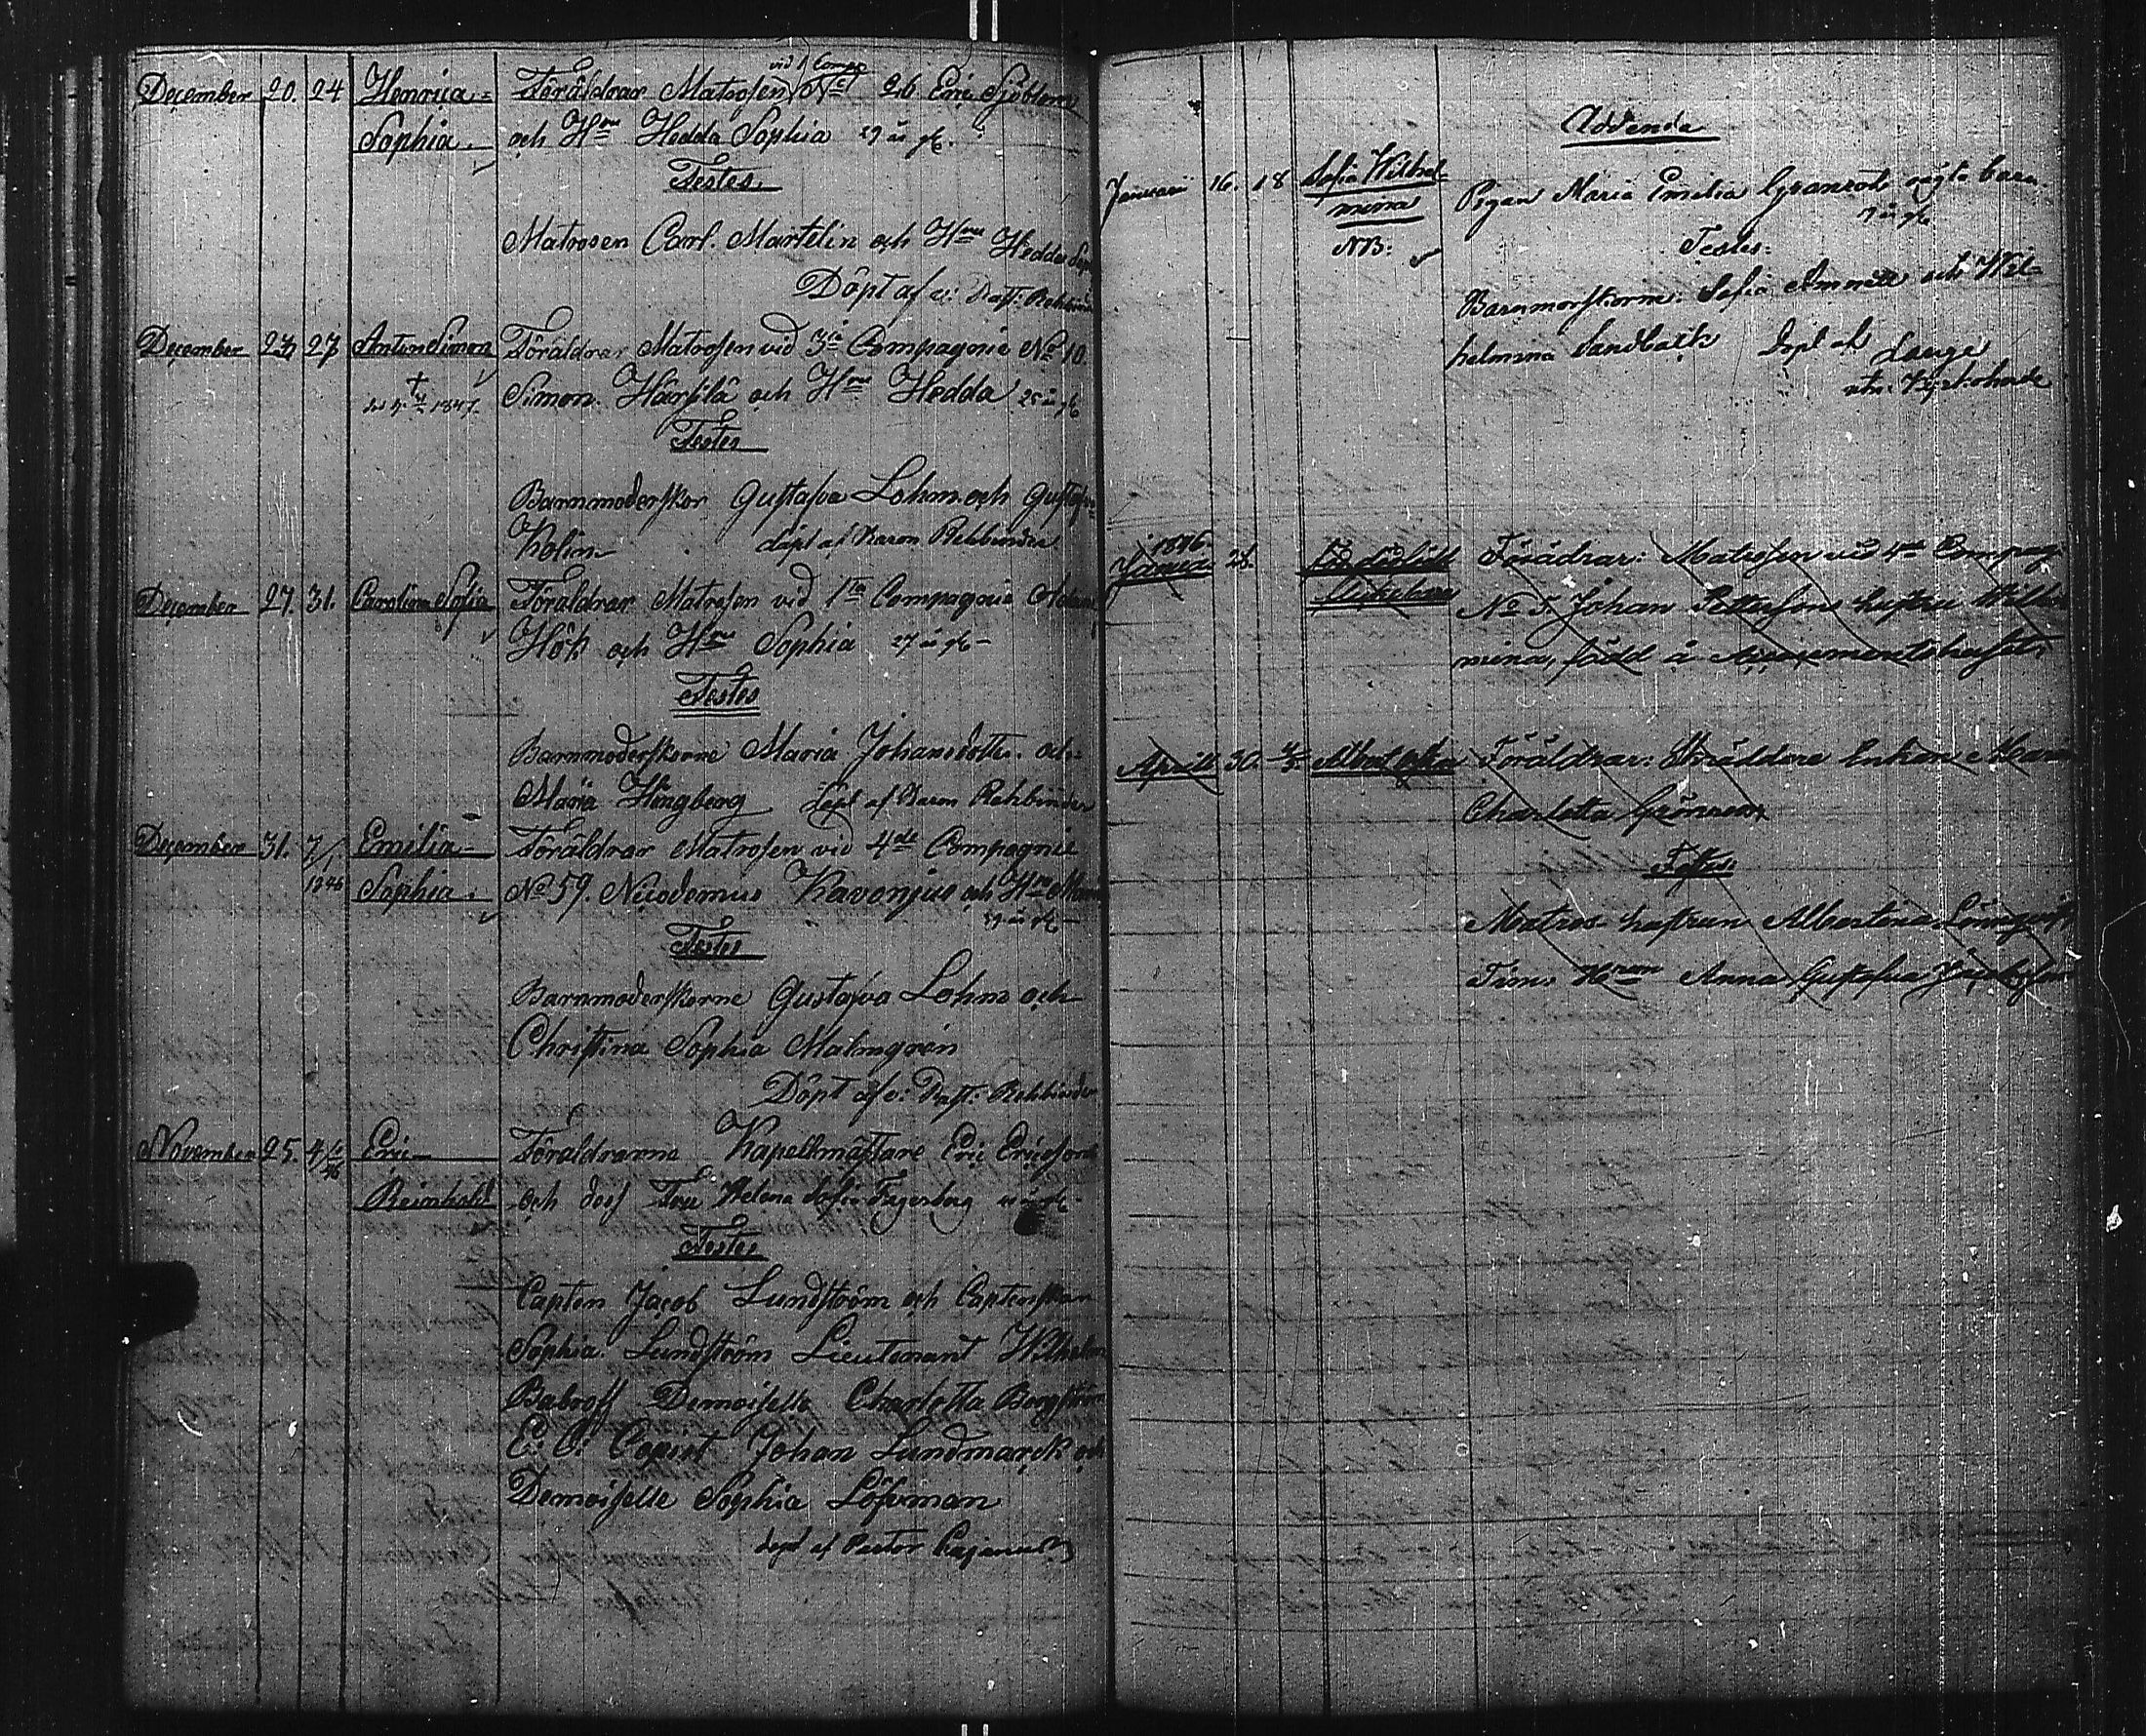 December 20. 24 Henrica= Föräldrar Matrosen vid 1 Comp. No 26 Eric Sjöblom
Sophia. och H:ru Hedda Sophia 29 år g/b.
Testes.
Matrosen Carl Martelin och H:ru Hedda
Döpt af v: Past: Rehbinder
December 27 Anton Simon Föräldrar Matrosen vid 3:ie Compagnie No 10.
† 1847. Simon Härsilä och H:ru Hedda 25 år g/b
Testes
Barnmoderskor Gustafva Lohm och Gustafva
Holin döpt af Baron Rehbinder
December 27. 31. Carolina Sofia Föräldrar Matrosen vid 1:ta Compagnie Adam
Höök och H:ru Sophia 27 år g/b
Testes
Barnmoderskorne Maria Johansdotter och
Maria Högberg döpt af Baron Rehbinder
December 31. 7/1 Emilia= Föräldrar Matrosen vid 4:de Compagnie
1846 Sophia. No 59. Nicodemus Kavonjus och H:ru Maria
Testes
Barnmoderskorne Gustafva Lohm och
Christina Sophia Malmgrén
Döpt af v: Past: Rehbinder
November 25. 4/1 46 Eric Föräldrarne Kapellmästare Eric Ericsson
Reinhold och dess Fru Helena Sofia Fagerberg
Testes
Capten Jacob Lundström och Captenskan
Sophia Lundström Lieutenant Wilhelm
Babroff Demoiselle Charlotta Bergström
E: O: Copist Johan Lundmarck och
Demoiselle Sophia Löfman
döpt af Pastor Cajanus
Addenda
Januari 16. 18 Sofia Wilhel-
mina Pigan Maria Emilia Granroth oägta barn
NB: Testes:
Barnmorskorna: Sofia Ammell och Wil-
helmina Sandbäck Döpt af Lauge
1846.
Januari 28. Ett dödfödt Föräldrar: Matrosen vid 4:de Compag.
flickebarn No 5 Johan Pettersons hustru Wilhel
mina, född å
April 30. Föräldrar: Skräddare Enkan Maria
Charlotta Grönroos
Testes
Matros hustrun Albertina
Timm: H:run Anna Gustafva